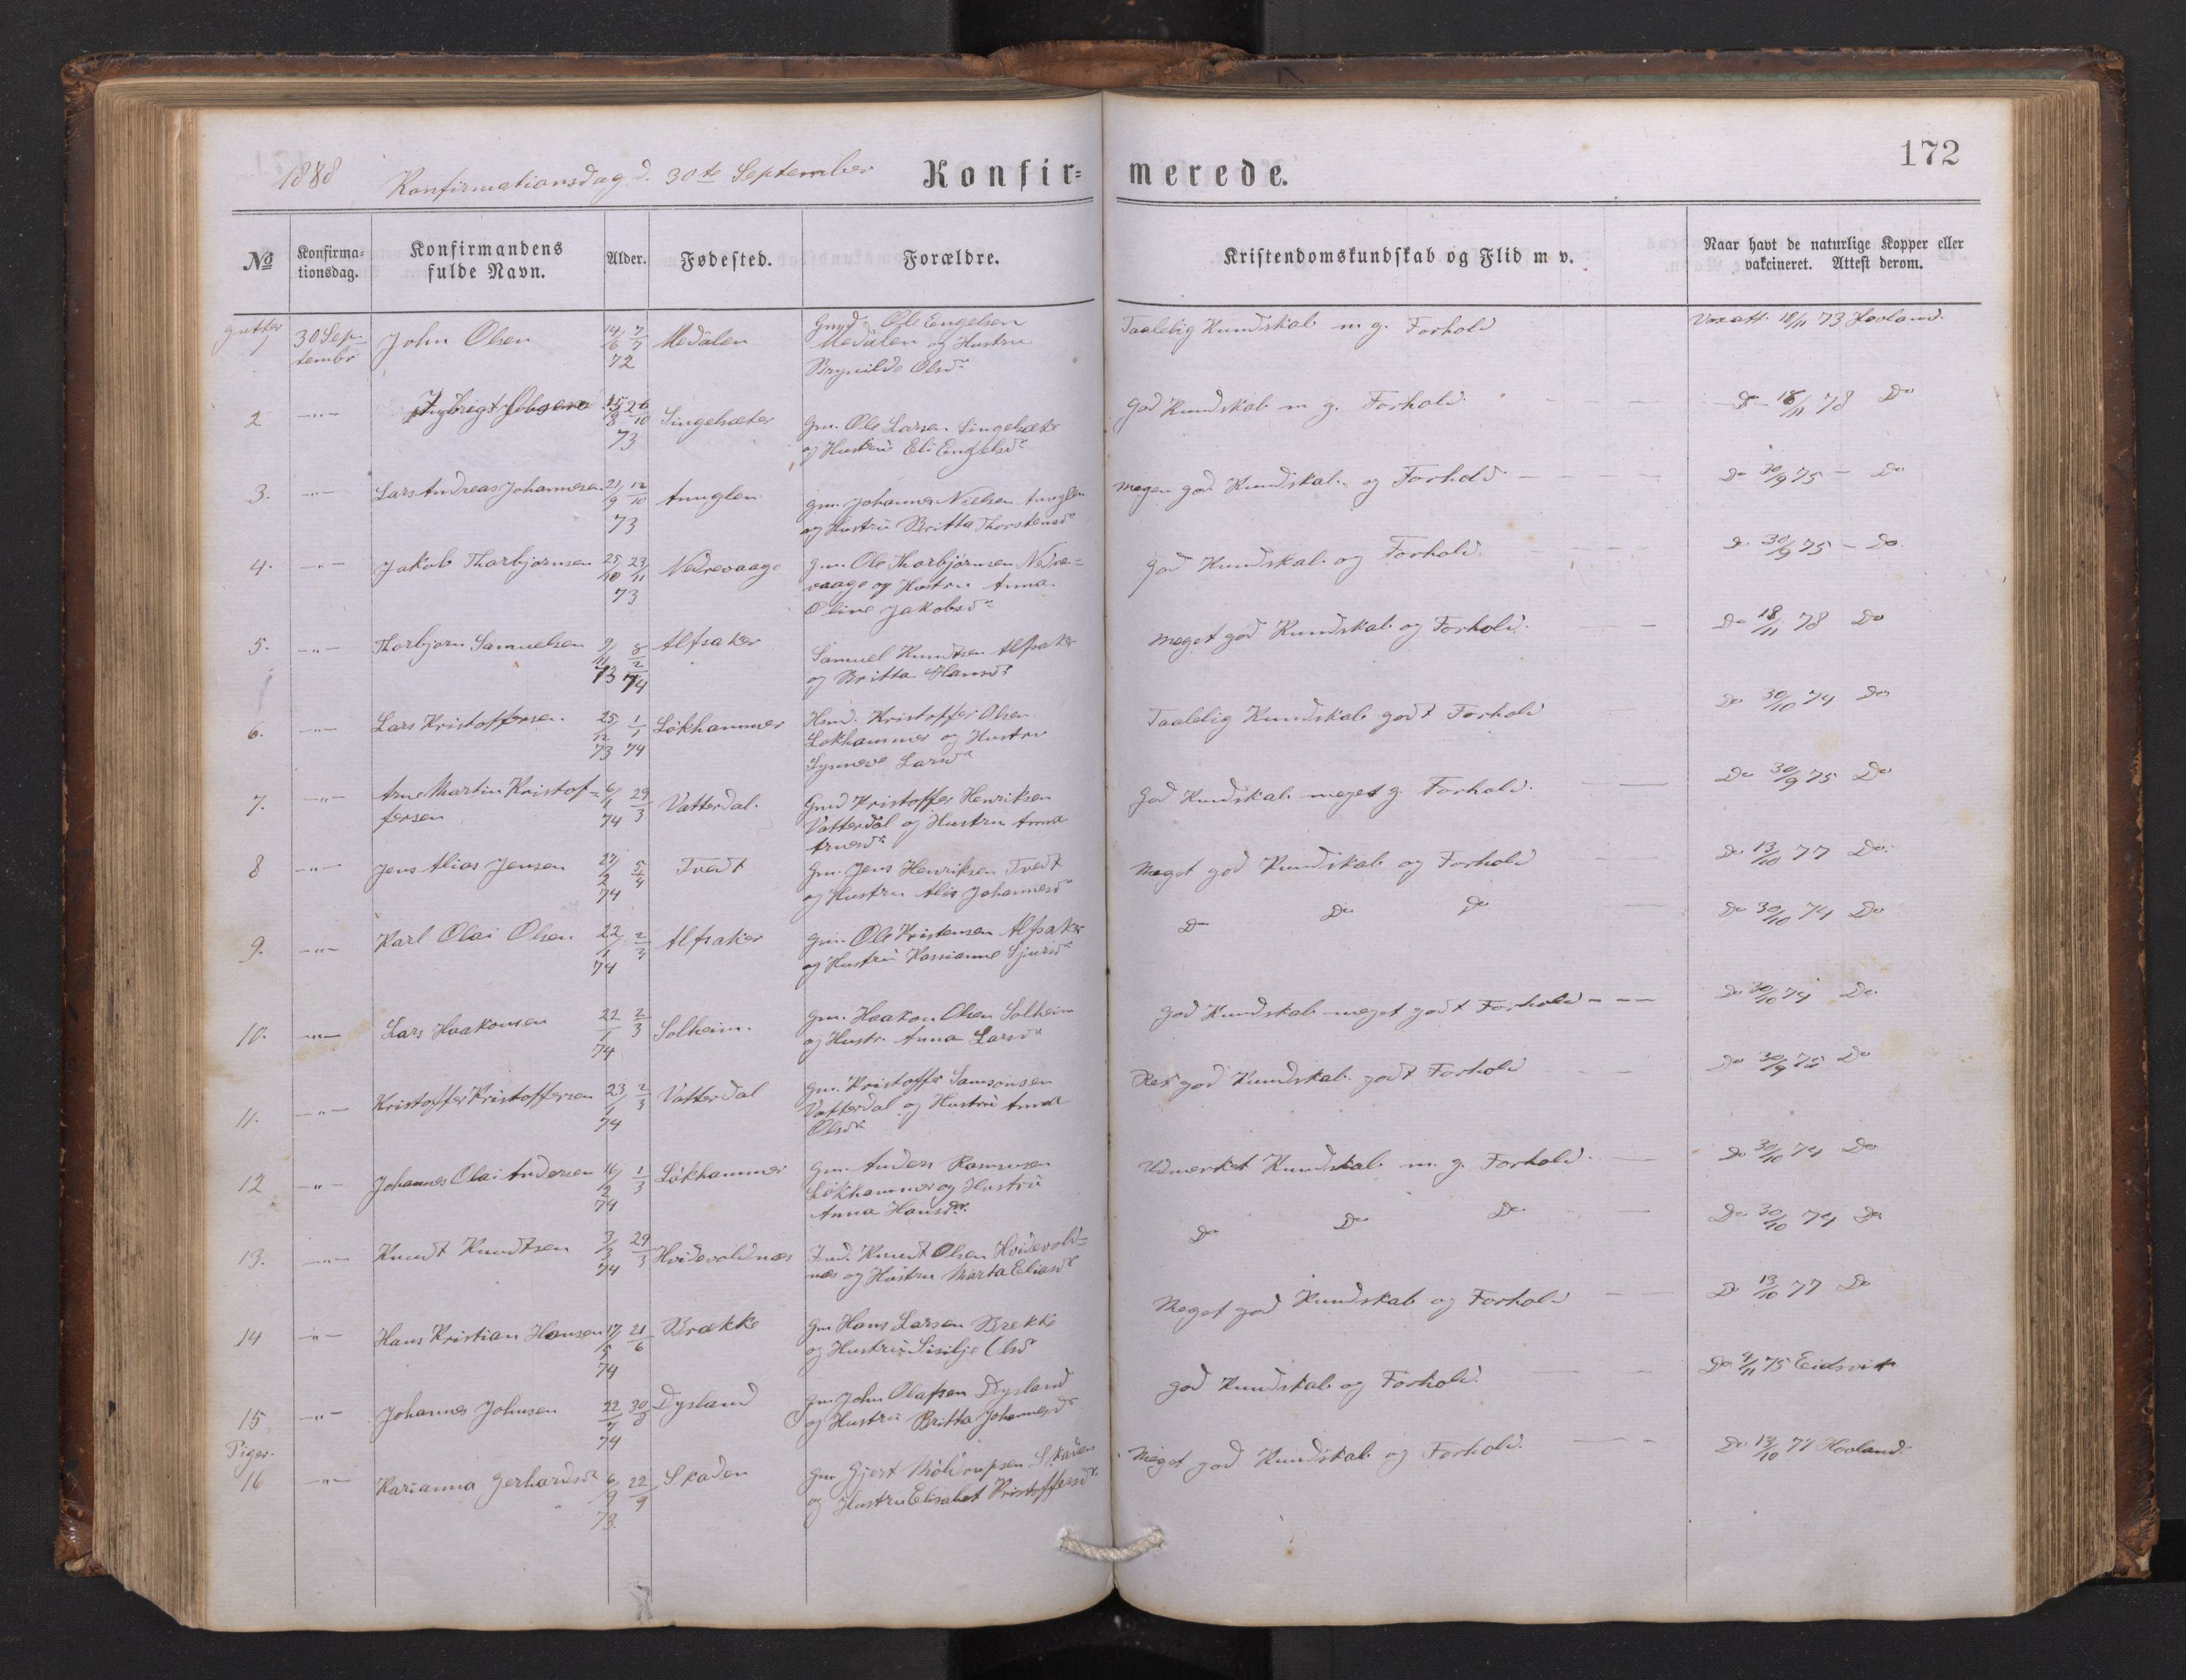 172
1888 Konfirmationsdag d. 30te September
Konfir= merede.
No
Konfirma=
tionsdag.
Konfirmandens
fulde Navn.
Alder.
Fødested.
Forældre.
Kristendomskundskab og Flid m v.
Naar havt de naturlige Kopper eller
vakcineret. Attest derom.
gutter
1 30 Sep- John Olsen 14/6 7/7 Medalen Gmd. Ole Engelsen Taalelig Kundskab m g. Forhold Vax att. 18/11 73 Hovland.
tembr 72 Medalen og Hustru
Brynilde Olsdr
2 -"- 26/10 Singelsæter God Kundskab m g. Forhold. D 18/11 78 Do
73 Gm. Ole Larsen Singelsæter
og Hustru Eli Engelsdr
3. -"- Lars Andreas Johannesen 21/9 12/10 Anuglen gm. Johannes Nielsen Anuglen Megen god Kundskab og Forhold Do 30/9 75 - Do
73 og Hustru Britta Thorstensdr
4. -"- Jakob Thorbjørnsen 25/10 23/11 Nedrevaage gm. Ole Thorbjørnsen Nedre= God Kundskab og Forhold D. 30/9 75 - Do.
73 vaage og Hustru Anna
Oline Jakobsdr
5. -"- Thorbjørn Samuelsen 9/11 8/2 Alfsaker Samuel Knudsen Alfsaker Meget god Kundskab og Forhold. Do 18/11 78 Do
73 74 og Britta Hansdr
6. -"- Lars Kristoffersen 25/12 1/1 Løkhammer Hmd. Kristoffer Olsen Taalelig Kundskab godt Forhold Do 30/10 74 Do
73 74 Løkhammer og Hustru
Synneve Larsdr
7. -"- Arne Martin Kristof= 6/1 29/3 Vatterdal. Gmd Kristoffer Henriksen God Kundskab meget g. Forhold. Do 30/9 75 Do
fersen 74 Vatterdal og Hustru Anna
Arnesdr
8 -"- Jens Alias Jensen 27/2 5/4 Tvedt Gm. Jens Henriksen Tvedt Meget god Kundskab og Forhold Do 13/10 77 Do.
74 og Hustru Alis Johannesdr
9. -"- Karl Olai Olsen 22/1 2/3 Alfsaker gm. Ole Kristensen Alfsaker Do Do Do Do 30/10 74 Do
74 og Hustru Kassianne Sjursdr
10. -"- Lars Haakonsen 22/1 2/3 Solheim. gm. Haakon Olsen Solheim God Kundskab meget godt Forhold - - - Do 30/10 74 Do
74 og Hustr. Anna Larsdr
11. -"- Kristoffer Kristoffersen 23/1 2/3 Vatterdal gm. Kristoffer Samsonsen god Kundskab godt Forhold Do 30/9 75 Do
74 Vatterdal og Hustru Anna
Olsdr.
12 -"- Johannes Olai Andersen 16/2 1/3 Løkhammer gm. Anders Rasmusen Udmerket Kundskab m. g. Forhold. Do 30/10 74 Do
74 Løkhammer og Hustru
Anna Hansdr.
13. -"- Knudt Knudtsen 3/3 29/3 Hvidevoldnæs Knudt Olsen Hvidevold= Do Do Do Do 30/10 74 Do
74 næs og Hustru Marta Eliasdr
14 -"- Hans Kristian Hansen 17/5 21/6 Brække gm Hans Larsen Brekke Meget god Kundskab og Forhold Do 13/10 77 Do
74 og Hustru Sisilje Olsdr
15. -"- Johannes Johnsen 22/7 30/8 Dysland gm. John Olafsen Dysland God Kundskab og Forhold. Do 4/11 75 Eidsvik
74 og Hustru Britta Johannesdr
Piger.
16 -"- Karianna Gerhardsdr 6/9 22/9 Skaden gm Gjert Skaden Meget god Kundskab og Forhold. Do 13/10 77 Hovland.
73. og Hustru Elisabet Kristoffersdr.